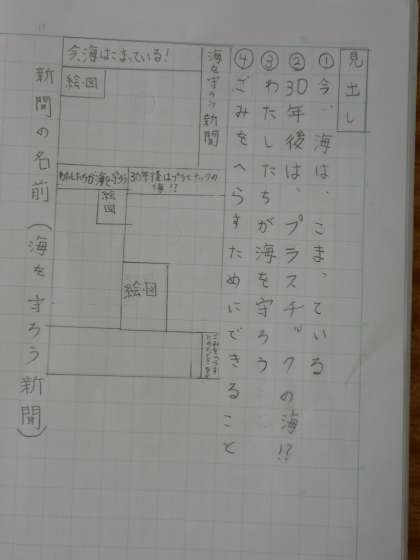 見出し
①今、海は、こまっている
②30年後は、プラスチックの海!?
③わたしたちが海を守ろう
④ごみをへらすためにできること
海を守ろう新聞
今、海はこまっている!
絵・図
30年後はプラスチックの海!?
わたしたちが海を守ろう
絵・図
絵・図
ごみをへらすためにできること
新聞の名前(海を守ろう新聞)